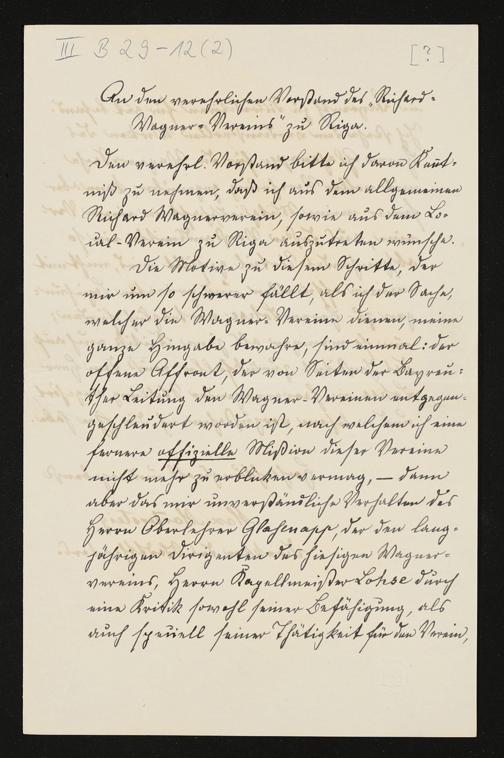 III B 29-12(2)
[?]
An den verehrlichen Vorstand des „Richard-
Wagner-Vereins“ zu Riga.
Den verehrl. Vorstand bitte ich davon Kent-
niß zu nehmen, daß ich aus dem allgemeinen
Richard Wagnerverein, sowie aus dem Lo-
cal-Verein zu Riga auszutreten wünsche.
Die Motive zu diesem Schritte, der
mir um so schwerer fällt, als ich der Sache,
welcher die Wagner-Vereine dienen, meine
ganze Hingabe bewahre, sind einmal: der
offene Affront, der von Seiten der Bayreu-
ther Leitung den Wagner-Vereinen entgegen-
geschleudert worden ist, nach welchem ich eine
fernere offizielle Mission dieser Vereine
nicht mehr zu erblicken vermag, — dann
aber das mir unverständliche Verhalten des
Herrn Oberlehrer Glasenapp, der den lang-
jährigen Dirigenten des hiesigen Wagner-
vereins, Herrn Kapellmeister Lohse durch
eine Kritik sowohl seiner Befähigung, als
auch speciell seiner Thätigkeit für den Verein,